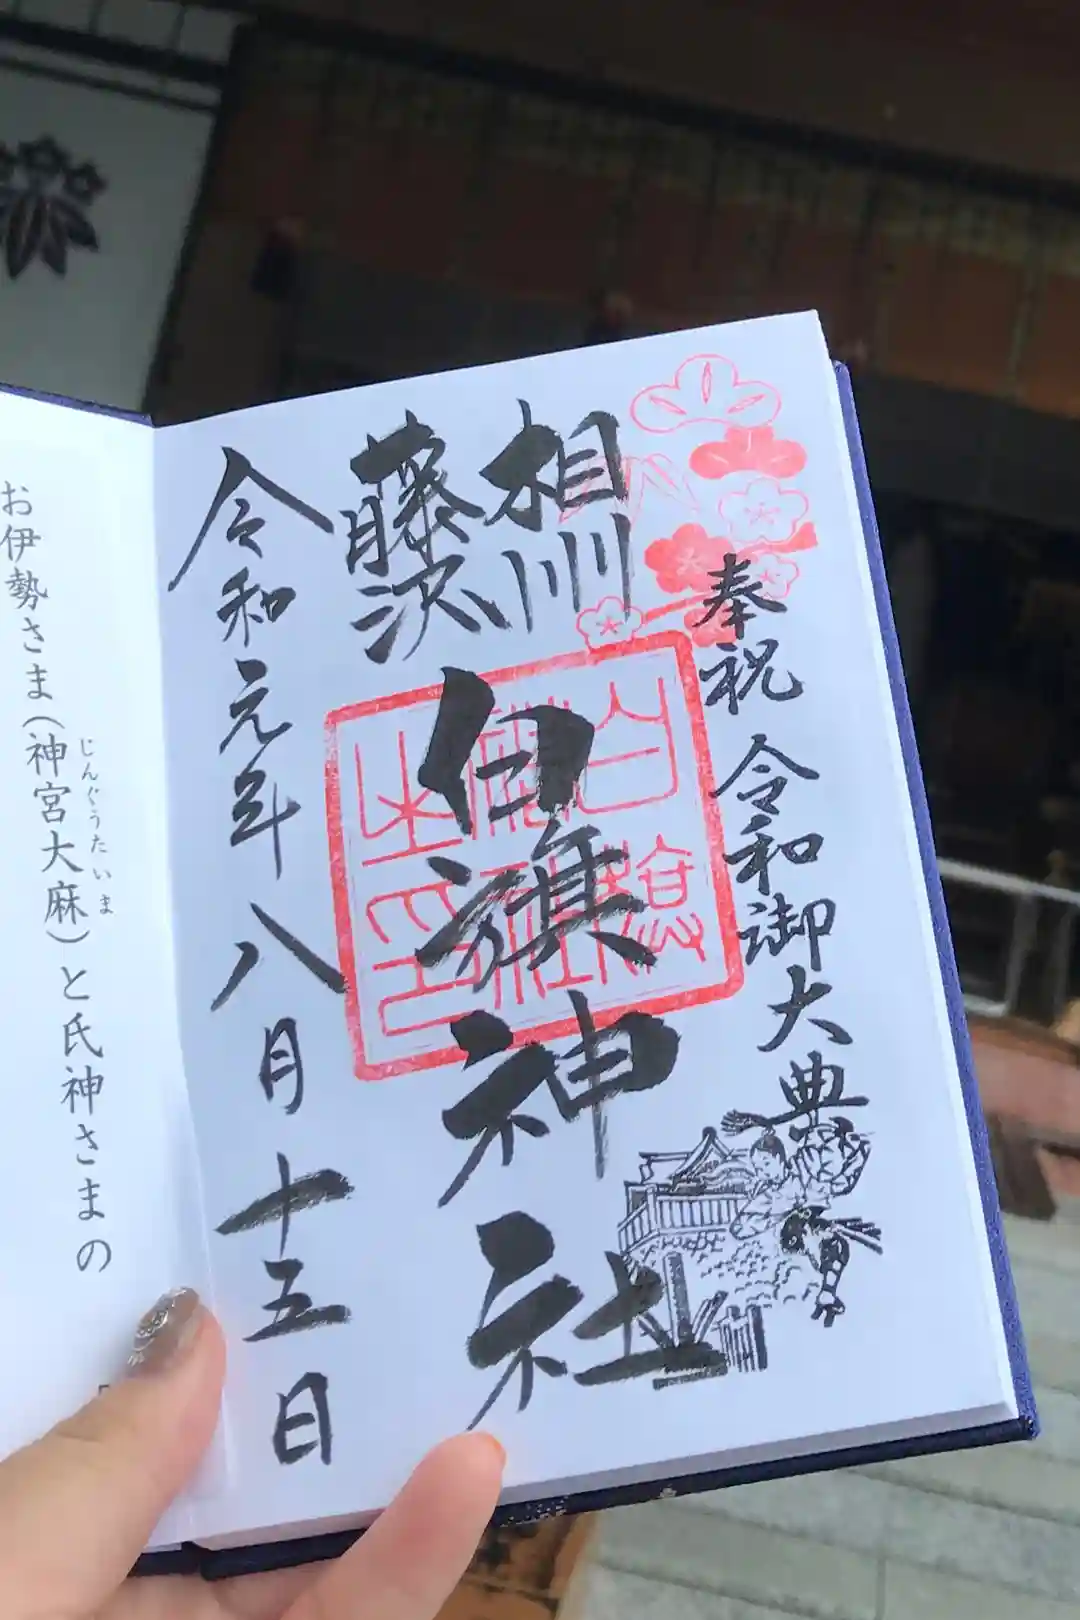 奉祝 令和御大典
相州
藤沢
白旗神社
令和元年八月十五日
じんぐうたいま
お伊勢さま(神宮大麻)と氏神さまの